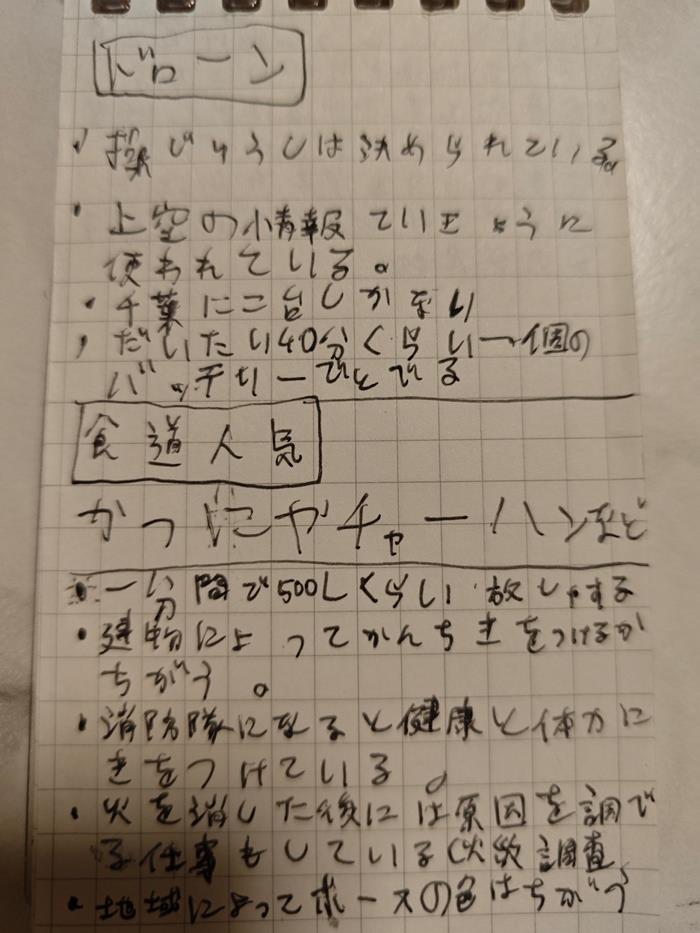 ドローン
・操じゅうしは決められている。
・上空の情報ていきょうに
使われている。
・千葉に二台しかない
・だいたい40分くらい一個の
バッテリーでとでる
食道人気
かつにやチャーハンなど
・一分間で500Lくらい放しゃする
・建物によってかんちきをつけるか
ちがう。
・消防隊になると健康と体力に
きをつけている。
・火を消した後には原因を調べ
る仕事もしている(火災調査
・地域によってホースの色はちがう